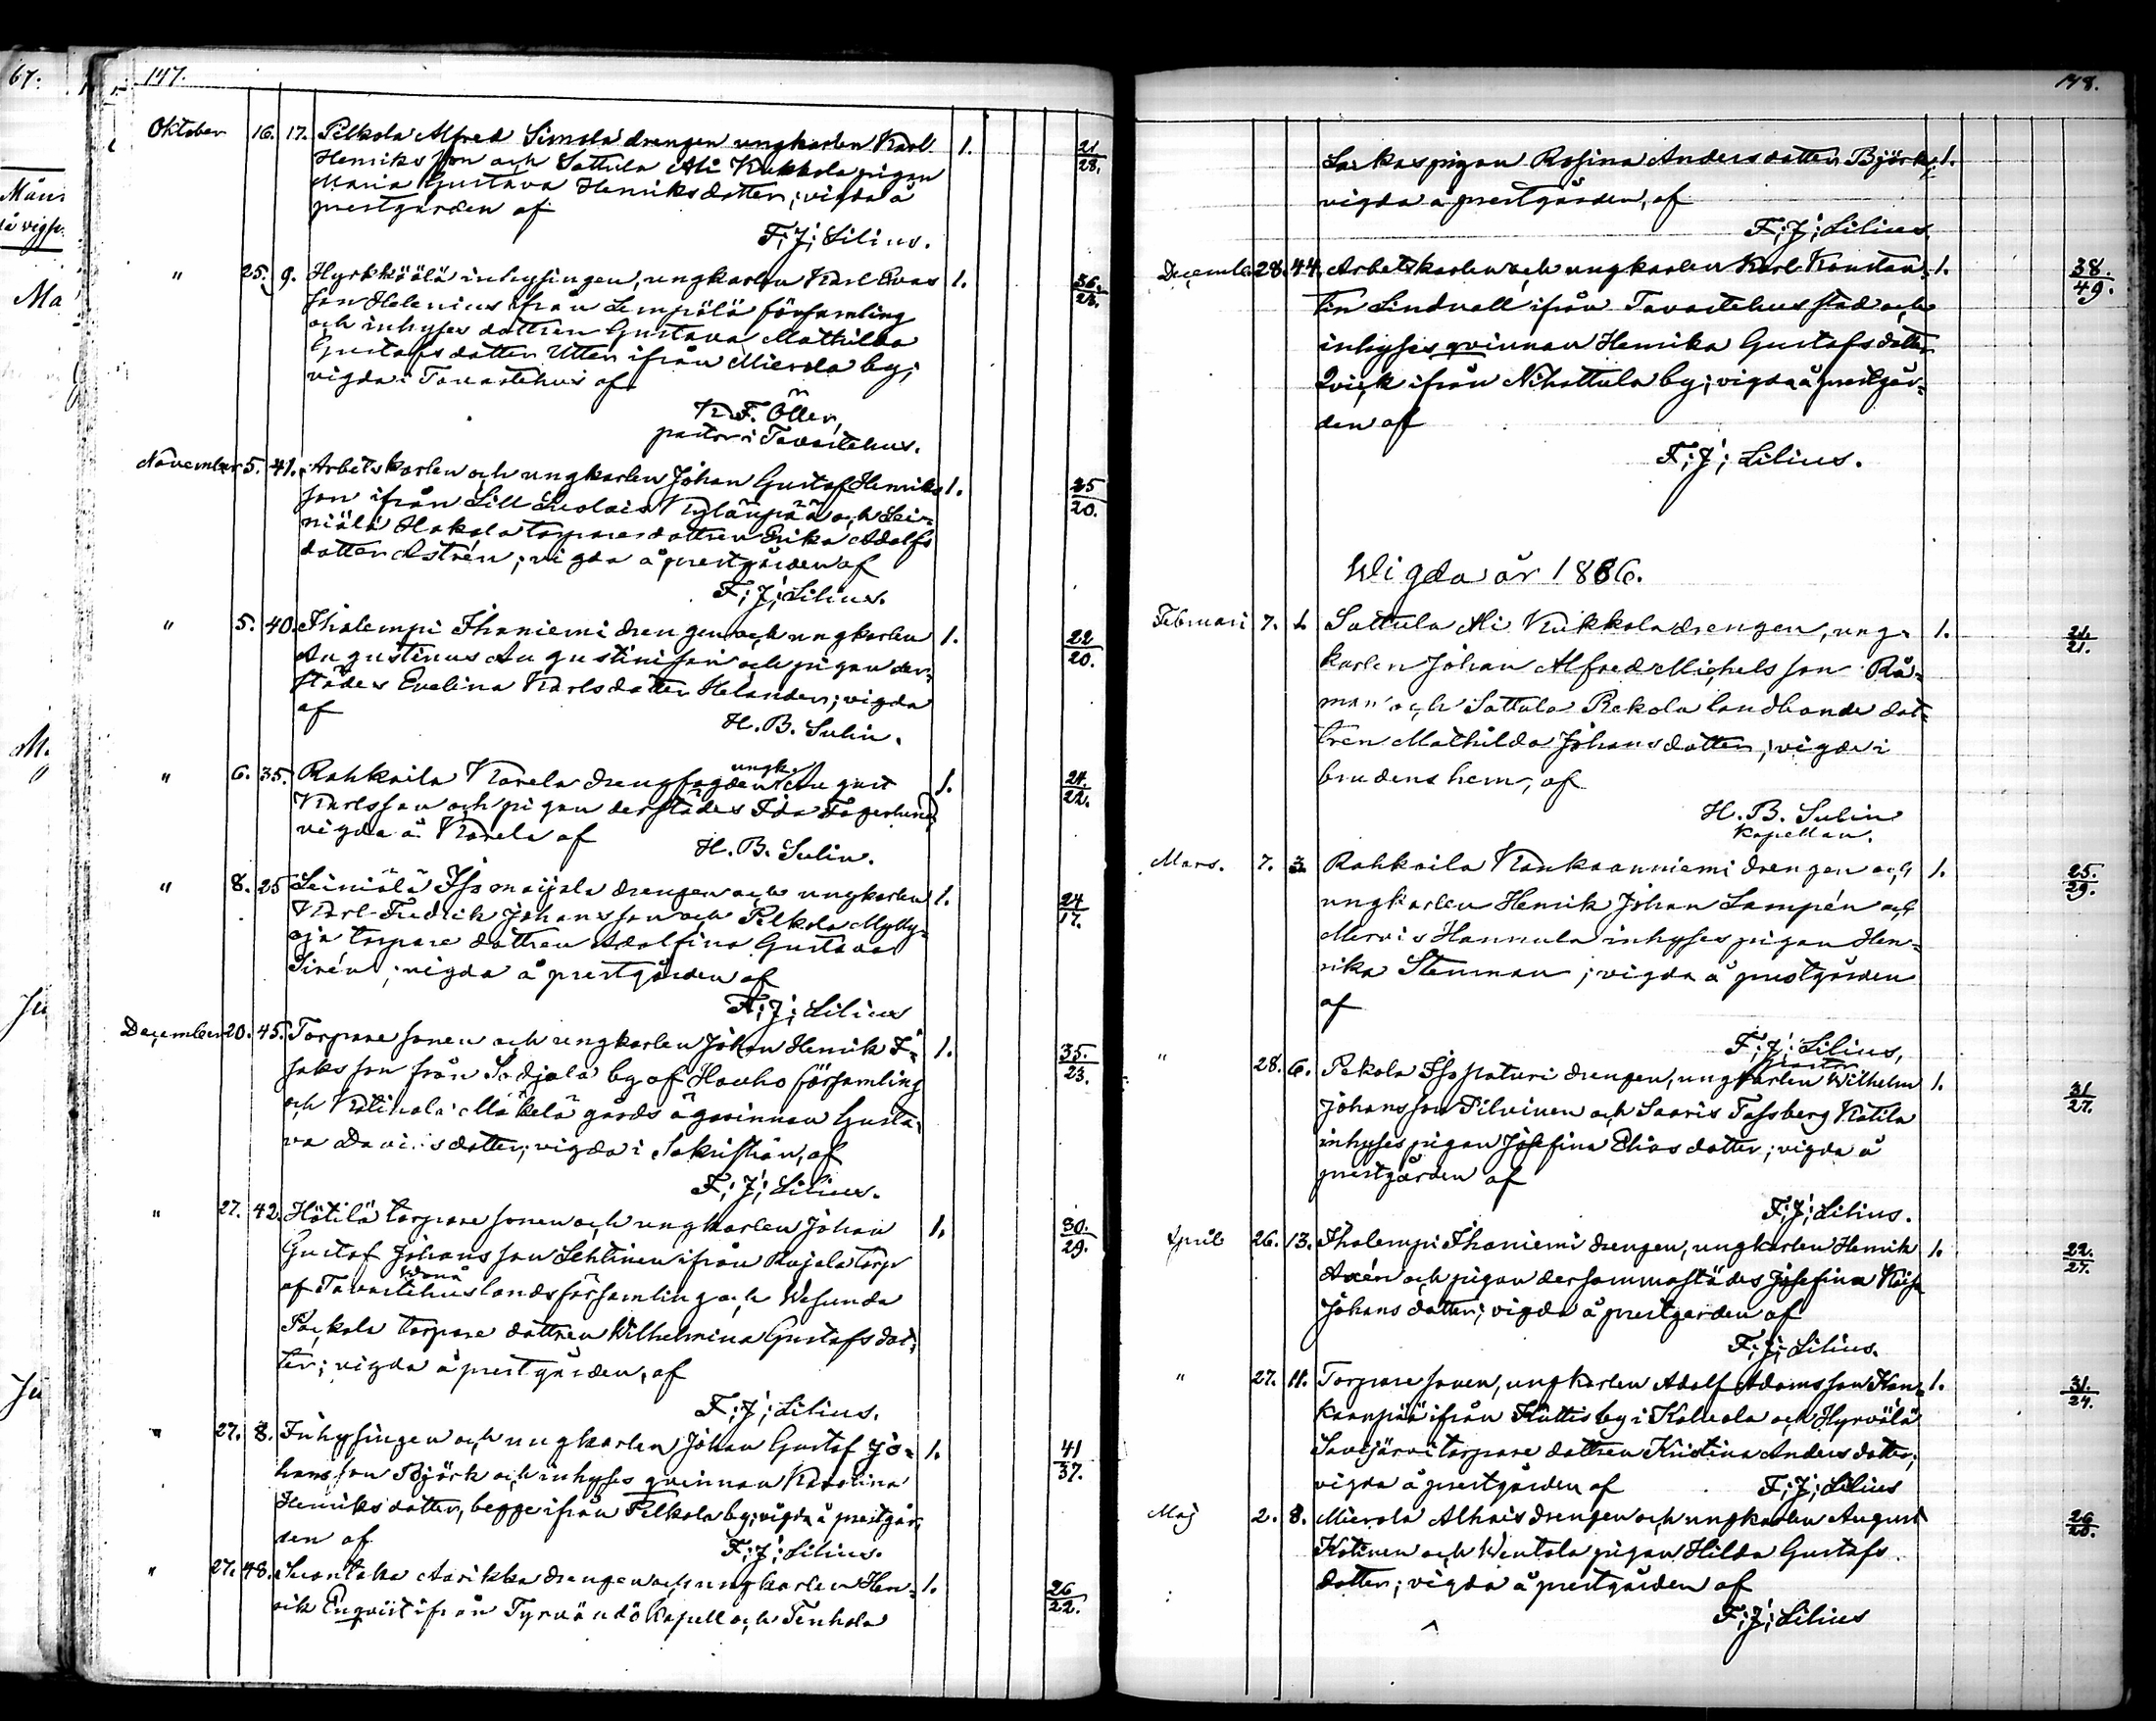 67.
147.
Oktober 16. 17. Pelkola Alfred Simola drengen ungkarlen Karl 1. 21/28.
Henriksson och Sattula Ali Kukkola pigan
Maria Gustava Henriksdotter; vigda å
prestgården af
F; J; Lilius.
" 25. 9. Hyrkköälä inhysingen, ungkarlen Karl Evas 1. 36./28.
son Helenius ifrån Lempälä församling
och inhyses dottren Gustava Mathilda
Gustafsdotter Utter ifrån Mierola by;
vigda i Tavastehus af
K. F. Öller,
pastor i Tavastehus.
November 5. 41. Arbetskarlen och ungkarlen Johan Gustaf Henriks 1. 25/20.
son ifrån Lill Luolais Kylänpää och Lei-
niälä Hakala torpare dottren Erika Adolfs
dotter Astrén; vigda å prestgården af
F; J; Lilius.
" 5. 40. Ihalempi Ihaniemi drengen och ungkarlen 1. 22/20.
Augustinus Augustinisson och pigan der-
städes Evelina Karlsdotter Helander; vigda
af
H. B. Sulin.
ungk.
" 6. 35. Rahkoila Karela drengfogden August 1. 24./22.
Karlsson och pigan derstädes Ida Fagerlund;
vigda å Karela af
H. B. Sulin.
" 8. 25 Leiniälä Isomaijala drengen och ungkarlen 1. 24/17.
Karl Fredrik Johansson och Pelkola Mylly-
oja torpare dottren Adolfina Gustava
Sirén; vigda å prestgården af
F; J; Lilius
December 20. 45. Torpare sonen och ungkarlen Johan Henrik I- 1. 35./23.
saksson från Sadjala by af Hauho församling
och Katinala Mäkelä gårds ägarinnan Gusta-
va Davidsdotter; vigda i Sakristian, af
F; J; Lilius.
" 27. 42. Hätilä torpare sonen och ungkarlen Johan 1. 30./29.
Gustaf Johansson Lehtinen ifrån Rajala torp
af Tavastehus landsförsamling och Wesunda
Packola torpare dottren Wilhelmina Gustafsdot-
ter; vigda å prestgården, af
F; J; Lilius.
" 27. 8. Inhysingen och ungkarlen Johan Gustaf Jo- 1. 41/37.
hansson Björk och inhyses qvinnan Karolina
Henriksdotter, begge ifrån Pelkola by; vigda å prestgår-
den af
F; J; Lilius.
" 27. 48. Suontaka Aarikka drengen och ungkarlen Hen- 1. 26/22.
rik Enqvist ifrån Tyrvändö Kapell och Tenhola
148.
Laikas pigan Rosina Andersdotter Björk; 1.
vigda å prestgården, af
F; J; Lilius.
December 28. 44. Arbetskarlen och ungkarlen Karl Konstan- 1. 38./49.
tin Lindvall ifrån Tavastehus stad och
inhyses qvinnan Henrika Gustafsdotter
Qvick ifrån Nihattula by; vigda å prestgår-
den af
F; J; Lilius.
Wigda år 1886.
Februari 7. 1. Sattula Ali Kukkola drengen, ung- 1. 21./21.
karlen Johan Alfred Michelsson Rå-
man och Sattula Rekola landbonde dot-
tren Mathilda Johansdotter; vigda i
brudens hem, af
H. B. Sulin
kapellan.
Mars. 7. 3. Rahkoila Kankaanniemi drengen och 1. 25./29.
ungkarlen Henrik Johan Lampén och
Mervis Hannula inhyses pigan Hen-
rika Stenman; vigda å prestgården
af
F; J; Lilius,
pastor
" 28. 6. Pekola Isopaturi drengen, ungkarlen Wilhelm 1. 31/27.
Johansson Pilvinen och Saaris Tassberg Katila
inhyses pigan Josefina Eliasdotter; vigda å
prestgården af
F; J; Lilius.
April 26. 13. Ihalempi Ihaniemi drengen, ungkarlen Henrik 1. 22./27.
Axén och pigan dersammastädes Josefina Kaisa
Johansdotter; vigda å prestgården af
F; J; Lilius.
" 27. 11. Torpare sonen, ungkarlen Adolf Adamsson Kan- 1. 31./24.
kaanpää ifrån Kuttis by i Kalvola och Hyrvälä
Savijärvi torpare dottren Kristina Andersdotter;
vigda å prestgården af F; J; Lilius
Maj 2. 8. Mierola Alhais drengen och ungkarlen August 1. 26/28.
Kotinen och Wentola pigan Hilda Gustafs
dotter; vigda å prestgården af
F; J; Lilius